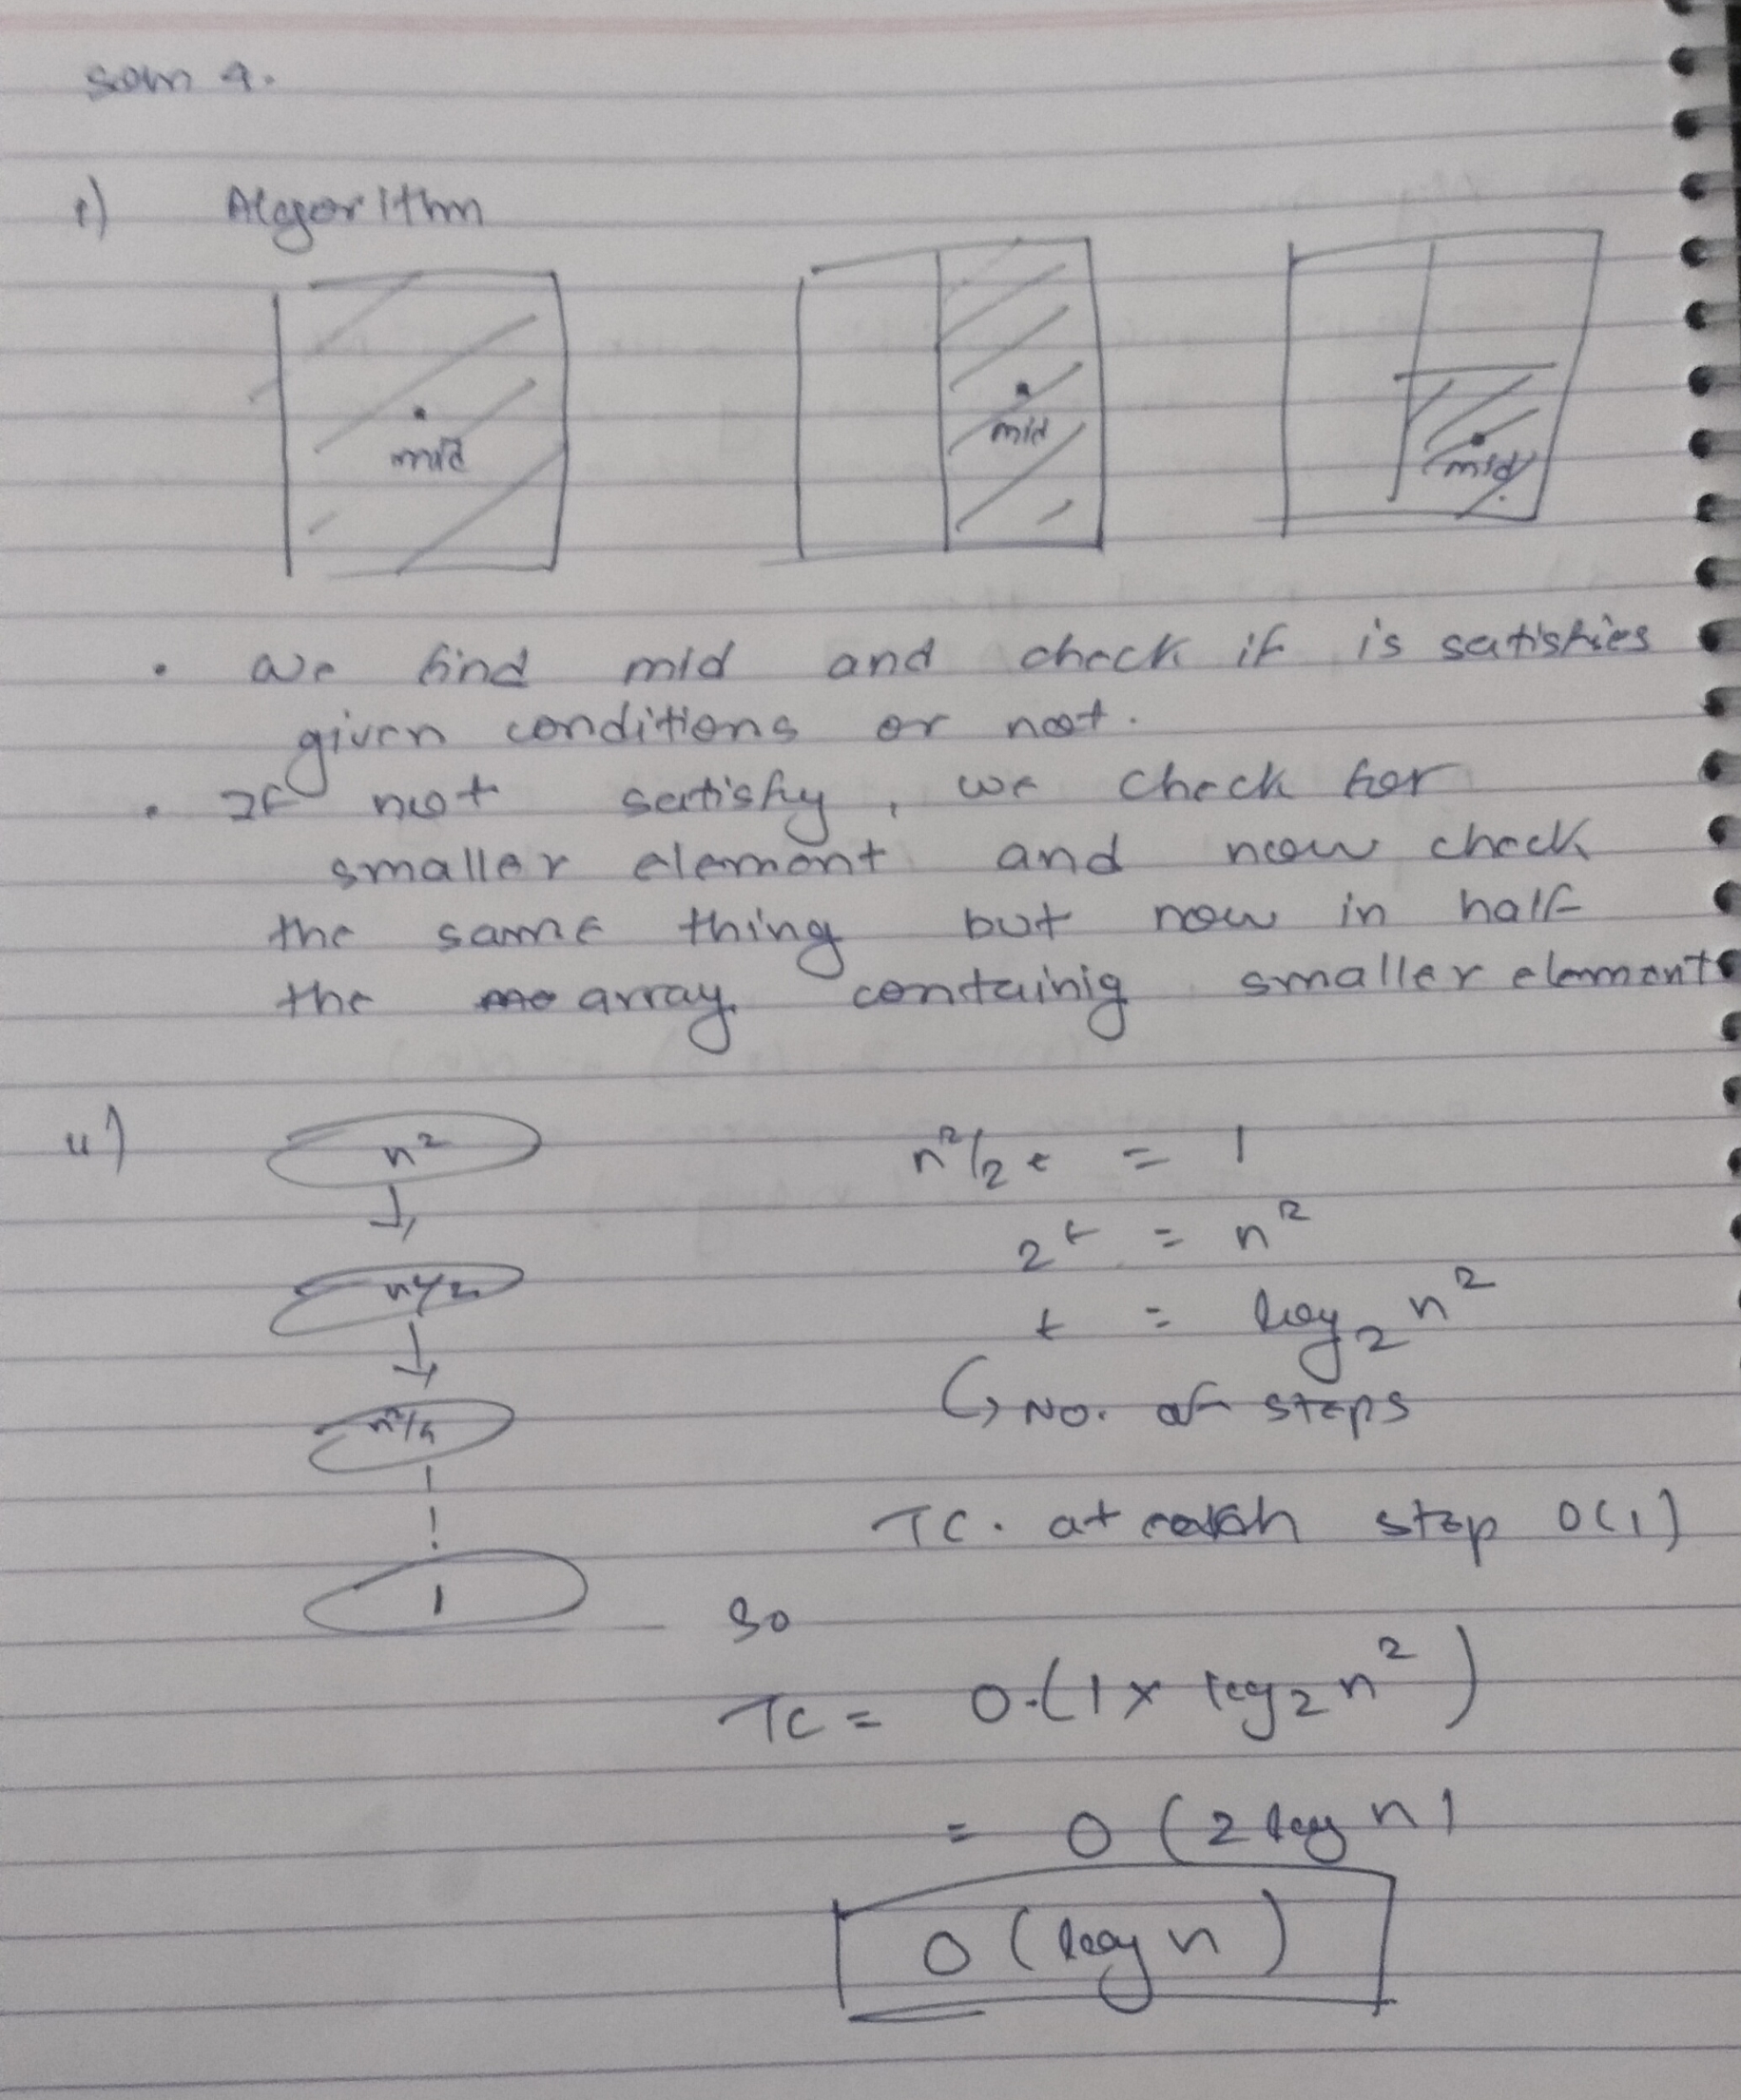 soln 4.
i) Algorithm
mid mid mid
• we find mid and check if is satisfies
given conditions or not.
• If not satisfy, we check for
smaller element and now check
the same thing but now in half
the array containig smaller elements
ii) n² n²/2^t = 1
2^t = n²
n²/2 t = log₂ n²
↳ No. of steps
n²/4
TC. at each step O(1)
1 So
TC = O(1 × log₂ n²)
= O(2 log n)
O(log n)